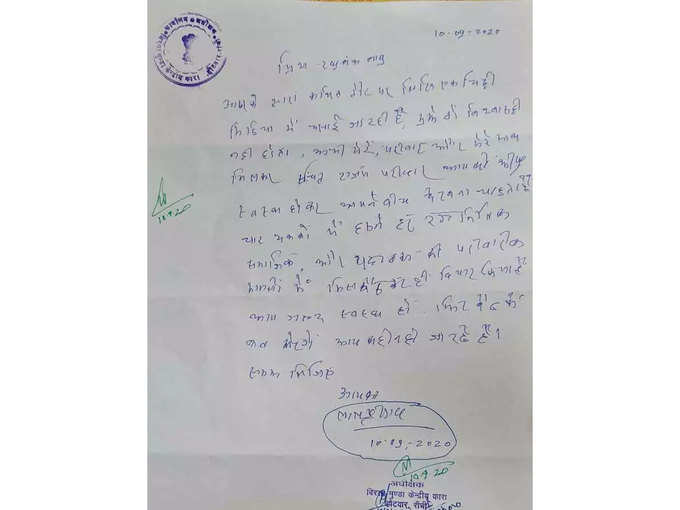 10-09-2020
प्रिय रघुवंश बाबु
आपके द्वारा कथित तौर पर लिखि एक चिट्ठी
मिडिया में चलाई जा रही है, मुझे तो विश्वास ही
नहीं होता, अभी मेरे, परिवार और मेरे साथ
मिलकर राजद परिवार आपको शीघ्र
स्वस्थ होकर अपने बीच देखना चाहता है
चार दशकों में हमने हर राजनितिक
समाजिक, और की पारिवारीक
मामलों में मिल बैठकर ही विचार किया है
आप जल्द स्वस्थ हो. फिर बैठ के
बात करेंगे आप कहीं नहीं जा रहे है।
समझ लिजिए
आपका
लालू प्रसाद
10.09.2020
10.9.20
10.9.20
अधीक्षक
बिरसा मुण्डा केन्द्रीय कारा
होटवार, राँची